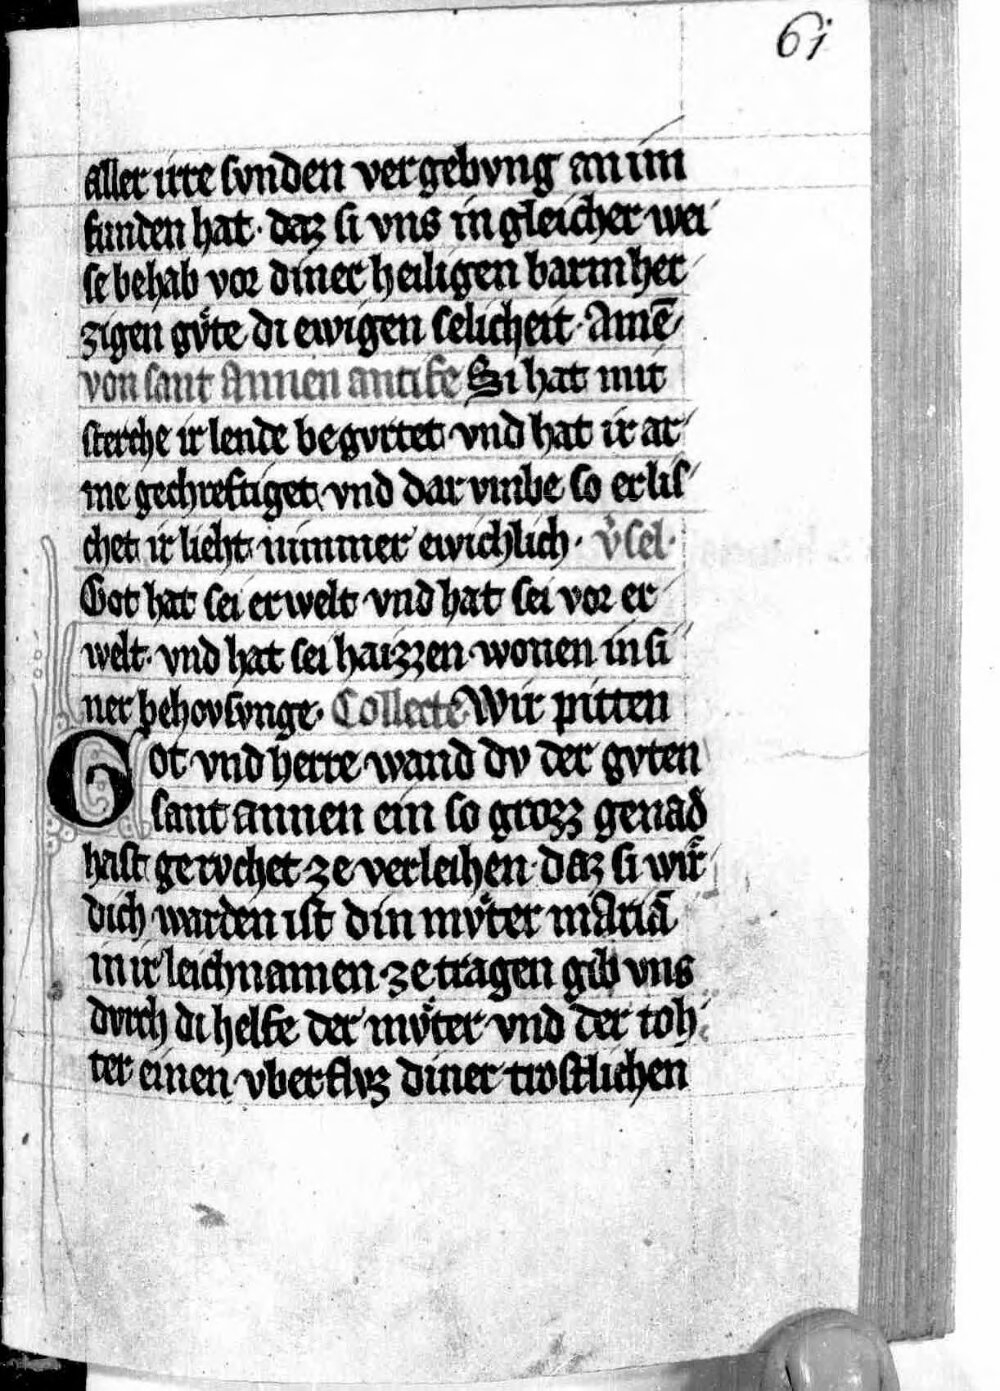 61
aller irre svnden vergebvng an im
funden hat · daz si vns in gleicher wei
se behab vor diner heiligen barmher
zigen gvͤte di ewigen selicheit · Amē
von sant Annen antife Si hat mit
sterche ir lende begvrtet vnd hat ir ar
me gechreftiget vnd dar vmbe so erlis
chet ir lieht nimmer ewichlich · v̓sel ·
Got hat sei erwelt vnd hat sei vor er
welt · vnd hat sei haizzen wonen in si
ner behovsvnge · Collecte Wir pitten
Got vnd herre wand dv der gvten
sant annen ein so grozz genad
hast gervchet ze verleihen · daz si wir
dich warden ist din mvͤter mariā
in ir leichnamen ze tragen gib vns
dvrch di helfe der mvͤter vnd der toh
ter einen vberflvz diner trostlichen